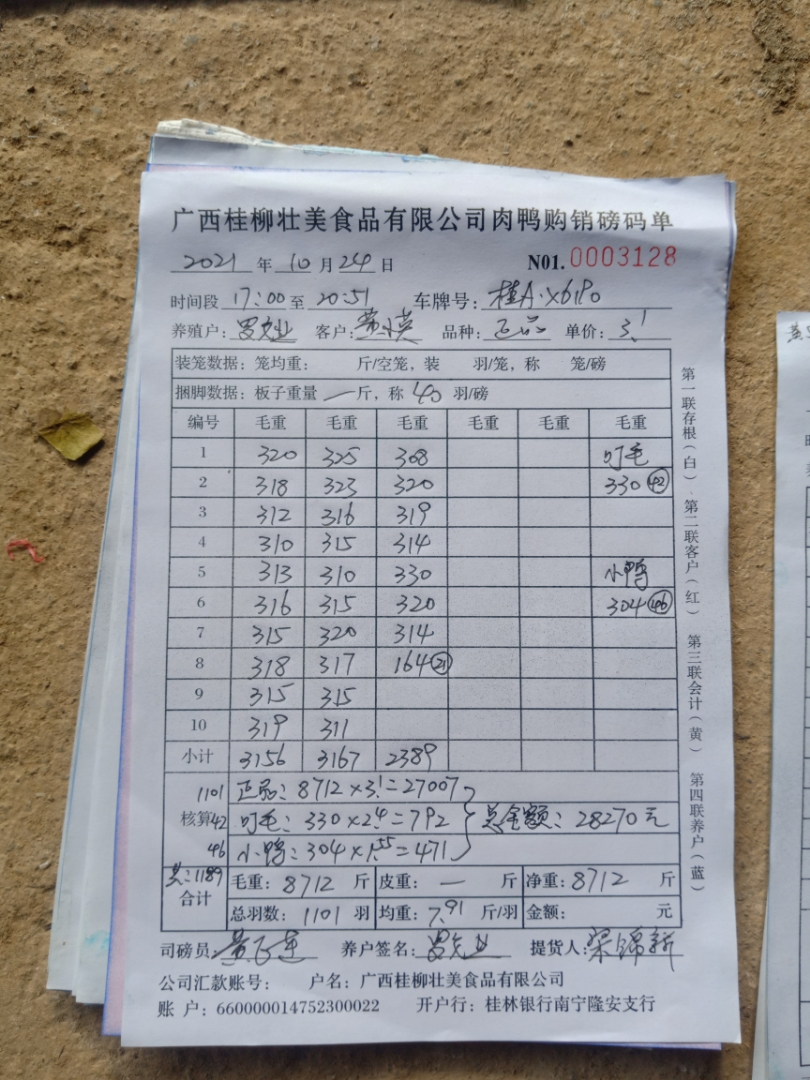 广西桂柳壮美食品有限公司肉鸭购销磅码单
2021 年 10 月 24 日 N01.0003128
时间段 17:00 至 20:51 车牌号: 桂A·X6180
养殖户: 客户: 品种: 正品 单价: 3.1
装笼数据: 笼均重: 斤/空笼, 装 羽/笼, 称 笼/磅
捆脚数据: 板子重量 — 斤, 称 40 羽/磅
编号 毛重 毛重 毛重 毛重 毛重 毛重
1 320 325 308 叮毛
2 318 323 320 330 42
3 312 316 319
4 310 315 314
5 313 310 330 小鸭
6 316 315 320 304 46
7 315 320 314
8 318 317 164 21
9 315 315
10 319 311
小计 3156 3167 2389
1101 正品: 8712×3.1=27007
核算 42 叮毛: 330×2.4=792 总金额: 28270元
46 小鸭: 304×1.55=471
共:1189
合计 毛重: 8712 斤 皮重: — 斤 净重: 8712 斤
总羽数: 1101 羽 均重: 7.91 斤/羽 金额: 元
司磅员: 养户签名: 提货人:
公司汇款账号: 户名: 广西桂柳壮美食品有限公司
账 户: 660000014752300022 开户行: 桂林银行南宁隆安支行
第一联存根(白) 第二联客户(红) 第三联会计(黄) 第四联养户(蓝)